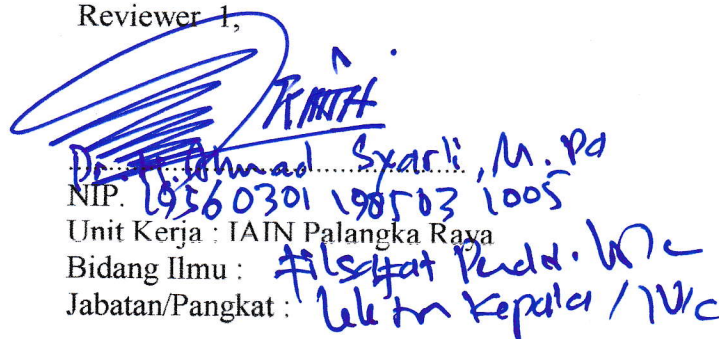 Reviewer 1,
Dr. H. Ahmad Syarli, M.Pd
NIP. 19560301 198503 1005
Unit Kerja : IAIN Palangka Raya
Bidang Ilmu : Filsafat Pendd.
Jabatan/Pangkat : Lektor Kepala / IV/c